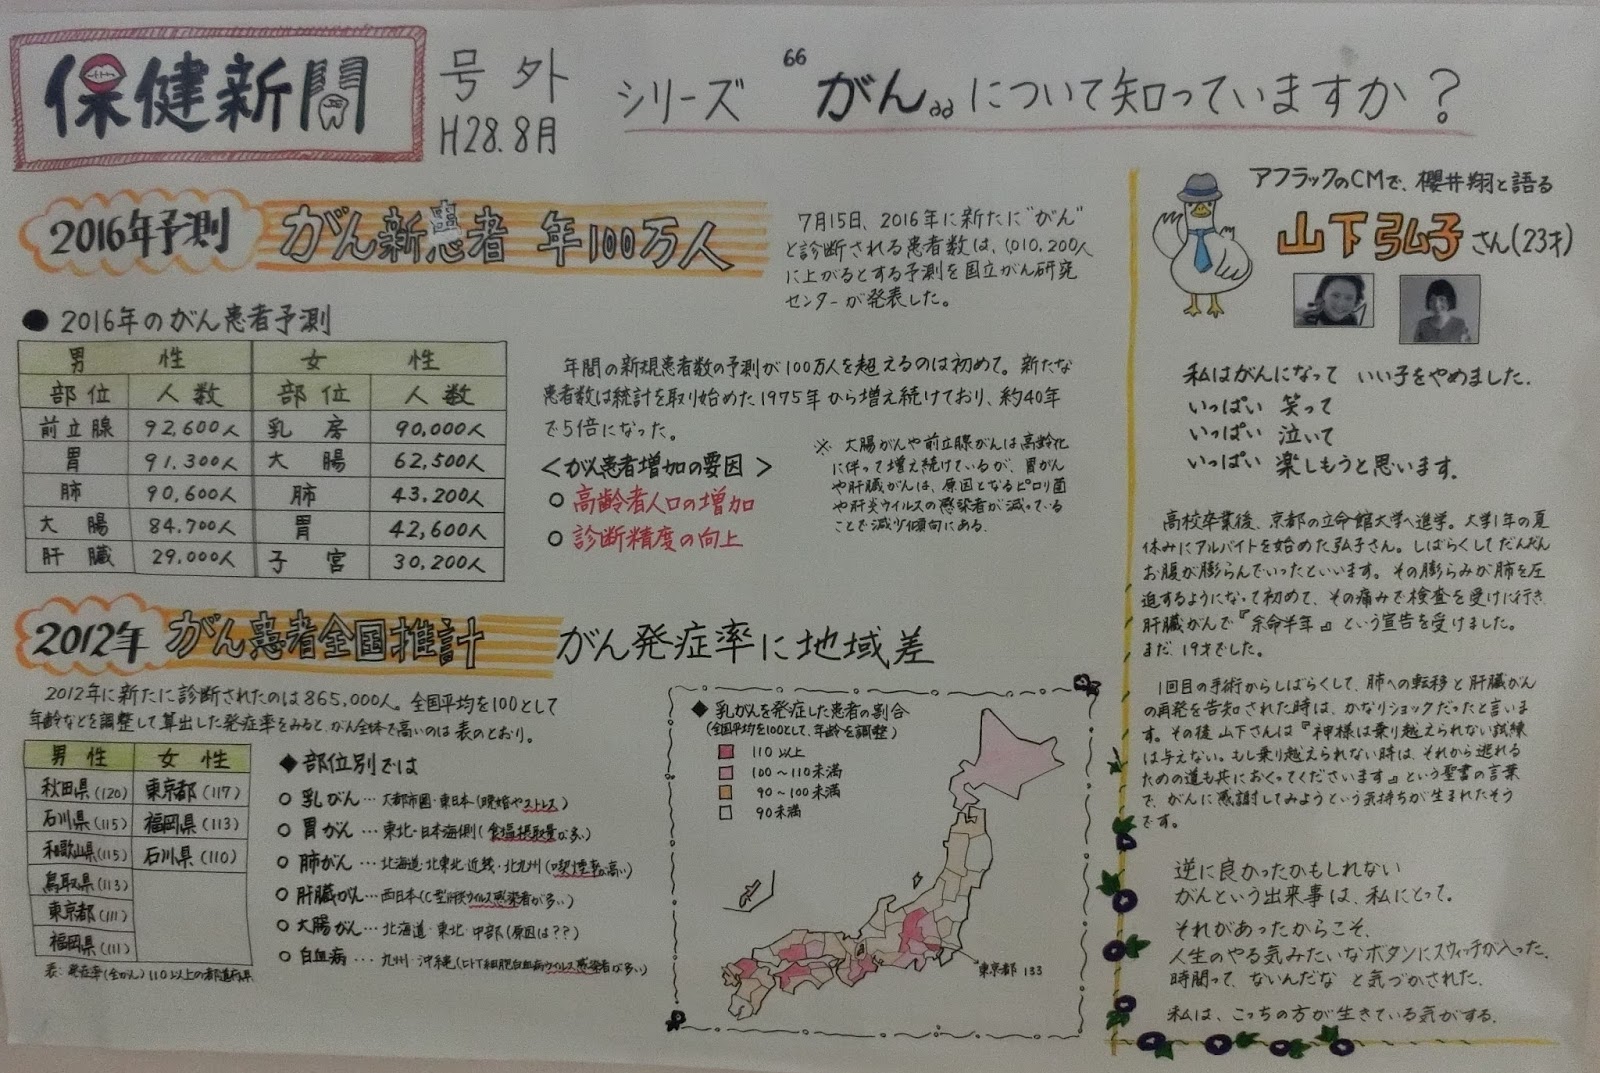 保健新聞
号外
H28.8月
シリーズ “がん„について知っていますか？
2016年予測 がん新患者 年100万人
7月15日、2016年に新たに“がん”
と診断される患者数は、1010,200人
に上がるとする予測を国立がん研究
センターが発表した。
●2016年のがん患者予測
男性 女性
部位 人数 部位 人数
前立腺 92,600人 乳房 90,000人
胃 91,300人 大腸 62,500人
肺 90,600人 肺 43,200人
大腸 84,700人 胃 42,600人
肝臓 29,000人 子宮 30,200人
年間の新規患者数の予測が100万人を超えるのは初めて。新たな
患者数は統計を取り始めた1975年から増え続けており、約40年
で5倍になった。
＜がん患者増加の要因＞
○高齢者人口の増加
○診断精度の向上
※大腸がんや前立腺がんは高齢化
に伴って増え続けているが、胃がん
や肝臓がんは、原因となるピロリ菌
や肝炎ウイルスの感染者が減っている
ことで減少傾向にある.
2012年 がん患者全国推計 がん発症率に地域差
2012年に新たに診断されたのは865,000人。全国平均を100として
年齢などを調整して算出した発症率をみると、がん全体で高いのは表のとおり。
男性 女性
秋田県(120) 東京都(117)
石川県(115) 福岡県(113)
和歌山県(115) 石川県(110)
鳥取県(113)
東京都(111)
福岡県(111)
表:発症率(全がん)110以上の都道府県
◆部位別では
○乳がん…大都市圏・東日本(晩婚やストレス)
○胃がん…東北・日本海側(食塩摂取量が多い)
○肺がん…北海道・北東北・近畿・北九州(喫煙率が高い)
○肝臓がん…西日本(C型肝炎ウイルス感染者が多い)
○大腸がん…北海道・東北・中部(原因は??)
○白血病…九州・沖縄(ヒトT細胞白血病ウイルス感染者が多い)
◆乳がんを発症した患者の割合
(全国平均を100として、年齢を調整)
110以上
100～110未満
90～100未満
90未満
東京都 133
アフラックのCMで、櫻井翔と語る
山下弘子さん(23才)
私はがんになって いい子をやめました.
いっぱい 笑って
いっぱい 泣いて
いっぱい 楽しもうと思います.
高校卒業後、京都の立命館大学へ進学。大学1年の夏
休みにアルバイトを始めた弘子さん。しばらくしてだんだん
お腹が膨らんでいったといいます。その膨らみが肺を圧
迫するようになって初めて、その痛みで検査を受けに行き、
肝臓がんで『余命半年』という宣告を受けました。
まだ、19才でした。
1回目の手術からしばらくして、肺への転移と肝臓がん
の再発を告知された時は、かなりショックだったと言いま
す。その後山下さんは『神様は乗り越えられない試練
は与えない。もし乗り越えられない時は、それから逃れる
ための道も共におくってくださいます』という聖書の言葉
で、がんに感謝してみようという気持ちが生まれたそう
です。
逆に良かったかもしれない
がんという出来事は、私にとって。
それがあったからこそ、
人生のやる気みたいなボタンにスウィッチが入った。
時間って、ないんだな と気づかされた.
私は、こっちの方が生きている気がする.